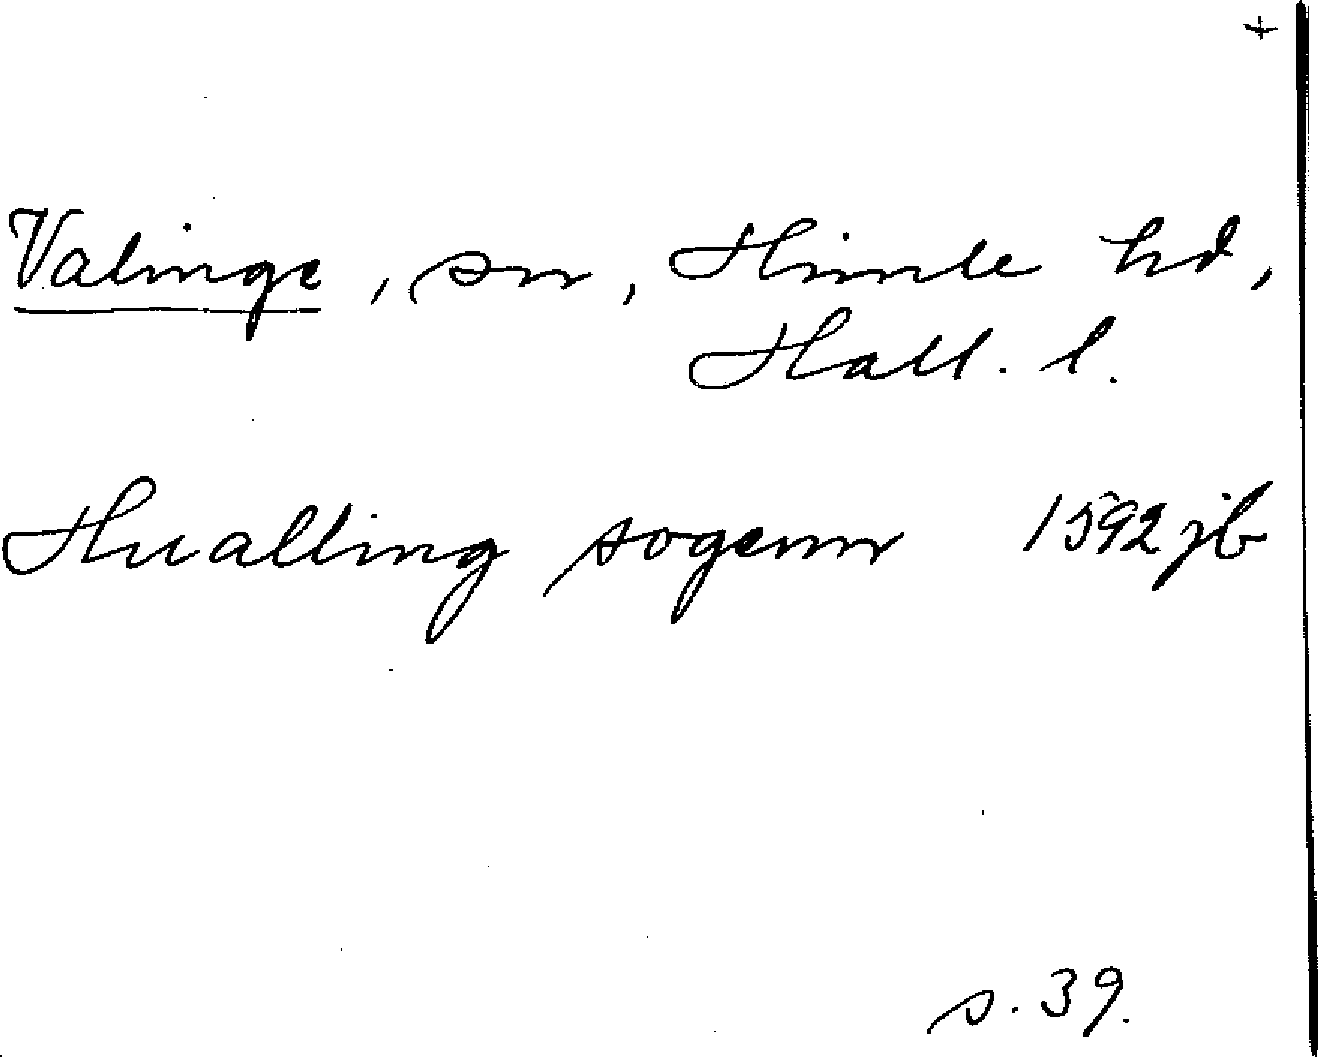 +
Valinge, sn, Himle hd,
Hall. l.
Hualling sogenn 1592 jb
s. 39.